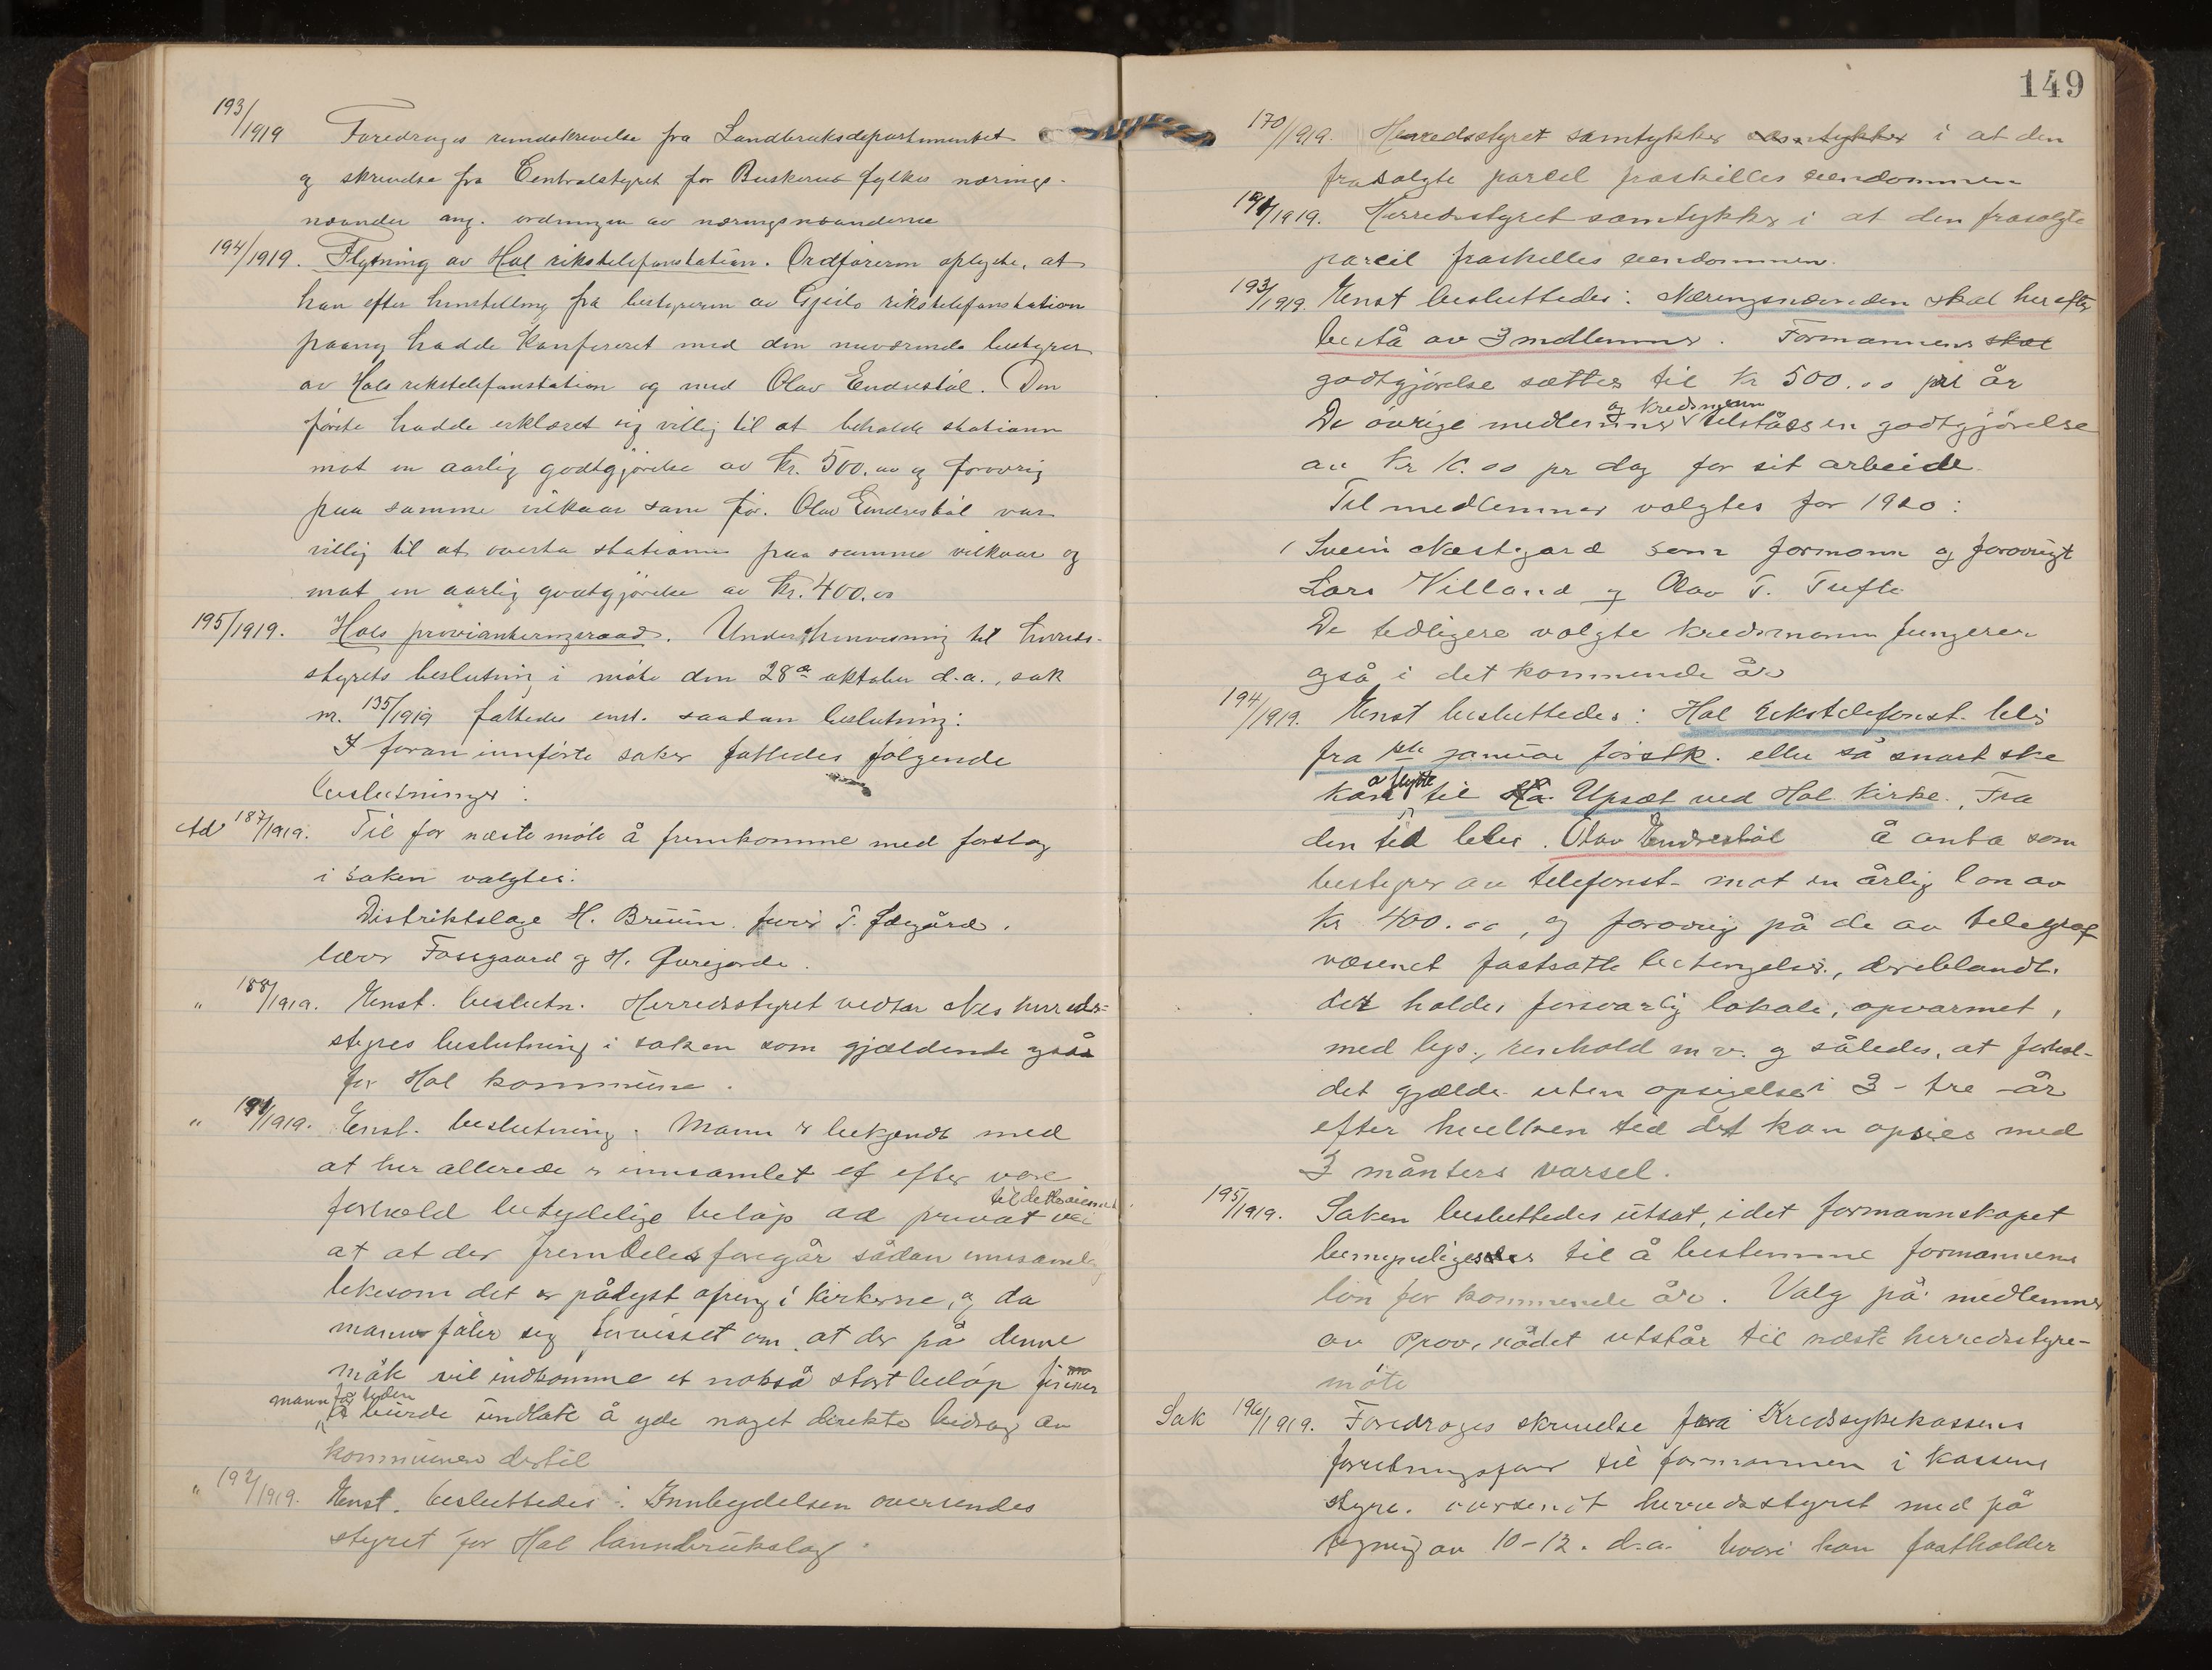 193/1919 Foredroges rundskrivelse fra Landbruksdepartementet
og skrivelse fra Centralstyret for Buskerud fylkes nærings-
nævnder ang. ordningen av næringsnævnderne
194/1919. Flytning av Hol rikstelefonstation. Ordføreren oplyste, at
han efter henstilling fra bestyreren av Gjeilo rikstelefonstation
paany hadde konfereret med den nuværende bestyrer
av Hols rikstelefonstation og med Olav Endrestöl. Den
förste hadde erklæret sig villig til at beholde stationen
mot en aarlig godtgjörelse av kr. 500.00 og forövrig
paa samme vilkaar som för. Olav Endrestöl var
villig til at overta stationen paa samme vilkaar og
mot en aarlig godtgjörelse av kr. 400.00
195/1919. Hols provianteringsraad. Under henvisning til herreds-
styrets beslutning i möte den 28de oktober d.a., sak
nr. 135/1919 fattedes enst. saadan beslutning:
I foran innförte saker fattedes fölgende
beslutninger:
Ad 187/1919. Til for næste möte å fremkomme med forslag
i saken valgtes:
Distriktslæge H. Bruun. T. Ødegård.
lærer Fossgaard og H.
" 188/1919. Enst. beslutn. Herredsstyret vedtar Nes herreds-
styres beslutning i saken som gjældende også
for Hol kommune.
" 191/1919. Enst. beslutning. Mann er bekjendt med
at her allerede er innsamlet et efter vore
forhold betydelige belöp ad privat vei til dette öiemed
at at der fremdeles foregår sådan innsaml.
likesom det er pålyst ofring i kirkerne, og da
mann föler sig forvisset om at der på denne
måte vil indkomme et nokså stort belöp finner
mann for tiden å burde undlate å yde noget direkte bidrag av
kommunen dertil
" 192/1919. Enst. besluttedes: Innbydelsen oversendes
styret for Hol lanndbrukslag.
149
170/1919. Herredsstyret samtykker samtykker i at den
frasolgte parcel fraskilles eiendommen
191/1919. Herredsstyret samtykker i at den frasolgte
parcil fraskilles eiendommen.
193/1919. Enst besluttedes: Næringsnævnden skal herefter
bestå av 3 medlemmer. Formannens skal
godtgjörelse sættes til kr 500.00 pr år
De övrige medlemmer og kredsmenn tilståes en godtgjörelse
av kr 10.00 pr dag for sit arbeide.
Til medlemmer valgtes for 1920:
Svein Næstegard som formann og forövrigt
Lars Villand og Olav T. Tufte
De tidligere valgte kredsmenn fungerer
også i det kommende år
194/1919. Enst besluttedes: Hol rikstelefonst. blir
fra 1ste januar förstk. eller så snart ske
kan å flytte til Upsæt ved Hol kirke. Fra
den tid blir Olav Endrestöl å anta som
bestyrer av telefonst. mot en årlig lön av
kr 400.00, og forövrig på de av telegraf
væsenet fastsatte betingelser, deriblandt
det holdes forsvarlig lokale, opvarmet,
med lys, renhold m.v. og således, at forhol-
det gjælder uten opsigelse i 3 - tre - år
efter hvilken tid det kan opsies med
3 månters varsel.
195/1919. Saken besluttedes utsat, idet formannskapet
bemyndiges til å bestemme formannens
lön for kommende år. Valg på medlemmer
av Prov. rådet utstår til næste herredsstyre-
möte
Sak 196/1919. Foredroges skrivelse fra Kredssykekassens
forretningsförer til formannen i kassens
styre. oversendt herredsstyret med på
tegning av 10-12. d.a. hvori han fastholder